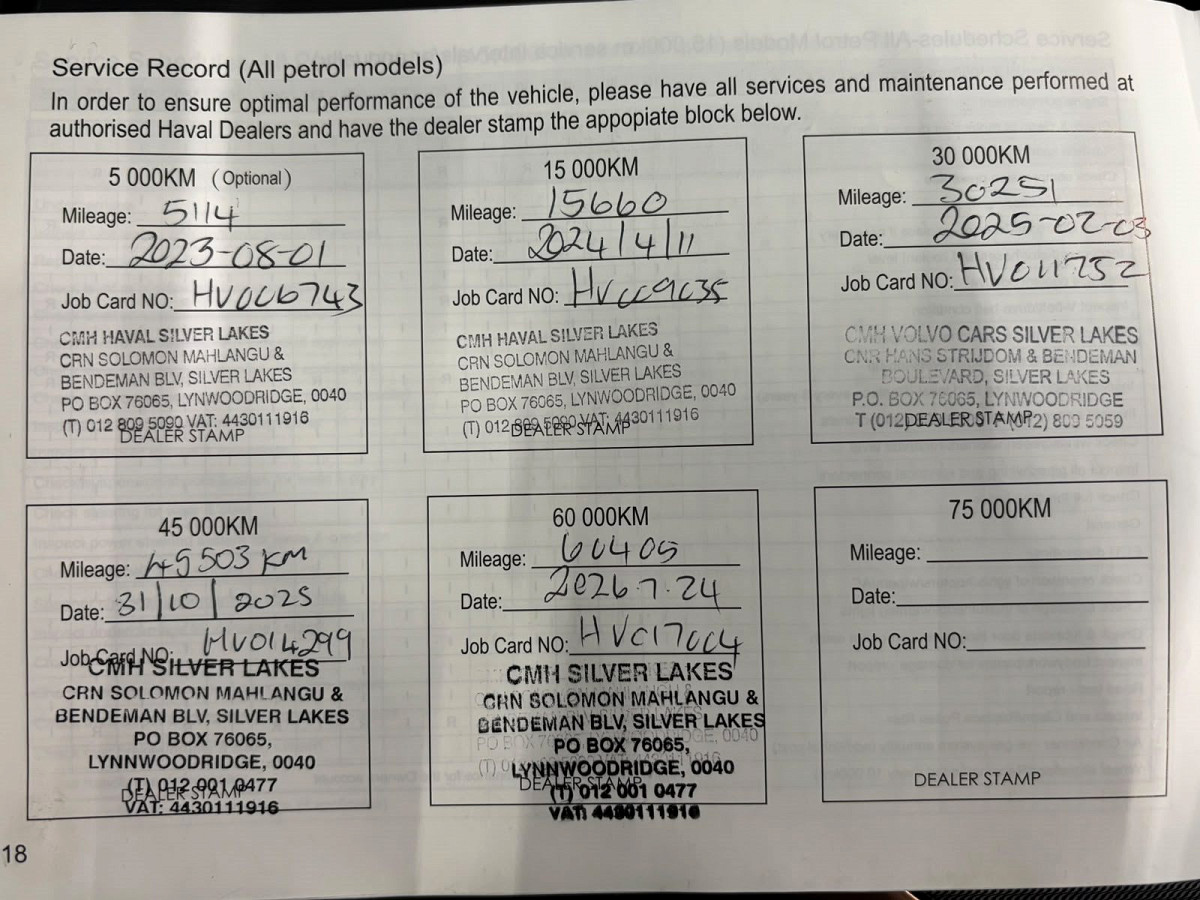 Service Record (All petrol models)
In order to ensure optimal performance of the vehicle, please have all services and maintenance performed at
authorised Haval Dealers and have the dealer stamp the appopiate block below.
5 000KM (Optional)
Mileage: 5114
Date: 2023-08-01
Job Card NO: HV006743
CMH HAVAL SILVER LAKES
CRN SOLOMON MAHLANGU &
BENDEMAN BLV, SILVER LAKES
PO BOX 76065, LYNWOODRIDGE, 0040
(T) 012 809 5090 VAT: 4430111916
DEALER STAMP
15 000KM
Mileage: 15660
Date: 2024/4/11
Job Card NO: HV009035
CMH HAVAL SILVER LAKES
CRN SOLOMON MAHLANGU &
BENDEMAN BLV, SILVER LAKES
PO BOX 76065, LYNWOODRIDGE, 0040
(T) 012 809 5090 VAT: 4430111916
DEALER STAMP
30 000KM
Mileage: 30251
Date: 2025-02-03
Job Card NO: HV011752
CMH VOLVO CARS SILVER LAKES
CNR HANS STRIJDOM & BENDEMAN
BOULEVARD, SILVER LAKES
P.O. BOX 76065, LYNWOODRIDGE
T (012) 809 5059
DEALER STAMP
45 000KM
Mileage: 45503 KM
Date: 31/10/2025
Job Card NO: HV014299
CMH SILVER LAKES
CRN SOLOMON MAHLANGU &
BENDEMAN BLV, SILVER LAKES
PO BOX 76065,
LYNNWOODRIDGE, 0040
(T) 012 001 0477
DEALER STAMP
VAT: 4430111916
60 000KM
Mileage: 60405
Date: 2026.7.24
Job Card NO: HV017004
CMH SILVER LAKES
CRN SOLOMON MAHLANGU &
BENDEMAN BLV, SILVER LAKES
PO BOX 76065,
LYNNWOODRIDGE, 0040
DEALER STAMP
(T) 012 001 0477
VAT: 4430111916
75 000KM
Mileage:
Date:
Job Card NO:
DEALER STAMP
18